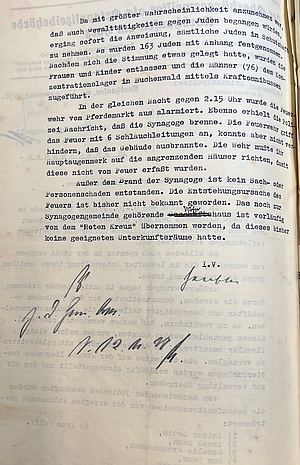 Da mit größter Wahrscheinlichkeit anzunehmen war,
das auch Gewalttätigkeiten gegen Juden begangen würden,
erging sofort die Anweisung, sämtliche Juden in Schutzhaft
zu nehmen. Es wurden 163 Juden mit Anhang festgenommen.
Nachdem sich die Stimmung etwas gelegt hatte, wurden die
Frauen und Kinder entlassen und die Männer (76) dem Kon-
zentrationslager in Buchenwald mittels Kraftomnibussen
zugeführt.
In der gleichen Nacht gegen 2.15 Uhr wurde die Feuer-
wehr vom Pferdemarkt aus alarmiert. Ebenso erhielt die Poli-
zei Nachricht, daß die Synagoge brenne. Die Feuerwehr griff
das Feuer mit 6 Schlauchleitungen an, konnte aber nicht ver-
hindern, daß das Gebäude ausbrannte. Die Wehr mußte ihr
Hauptaugenmerk auf die angrenzenden Häuser richten, damit
diese nicht vom Feuer erfaßt wurden.
Außer dem Brand der Synagoge ist kein Sach- oder
Personenschaden entstanden. Die Entstehungsursache des
Feuers ist bisher nicht bekannt geworden. Das noch zur
Synagogengemeinde gehörende haus ist vorläufig
von dem "Roten Kreuz" übernommen worden, da dieses bisher
keine geeigneten Unterkunftsräume hatte.
I.V.